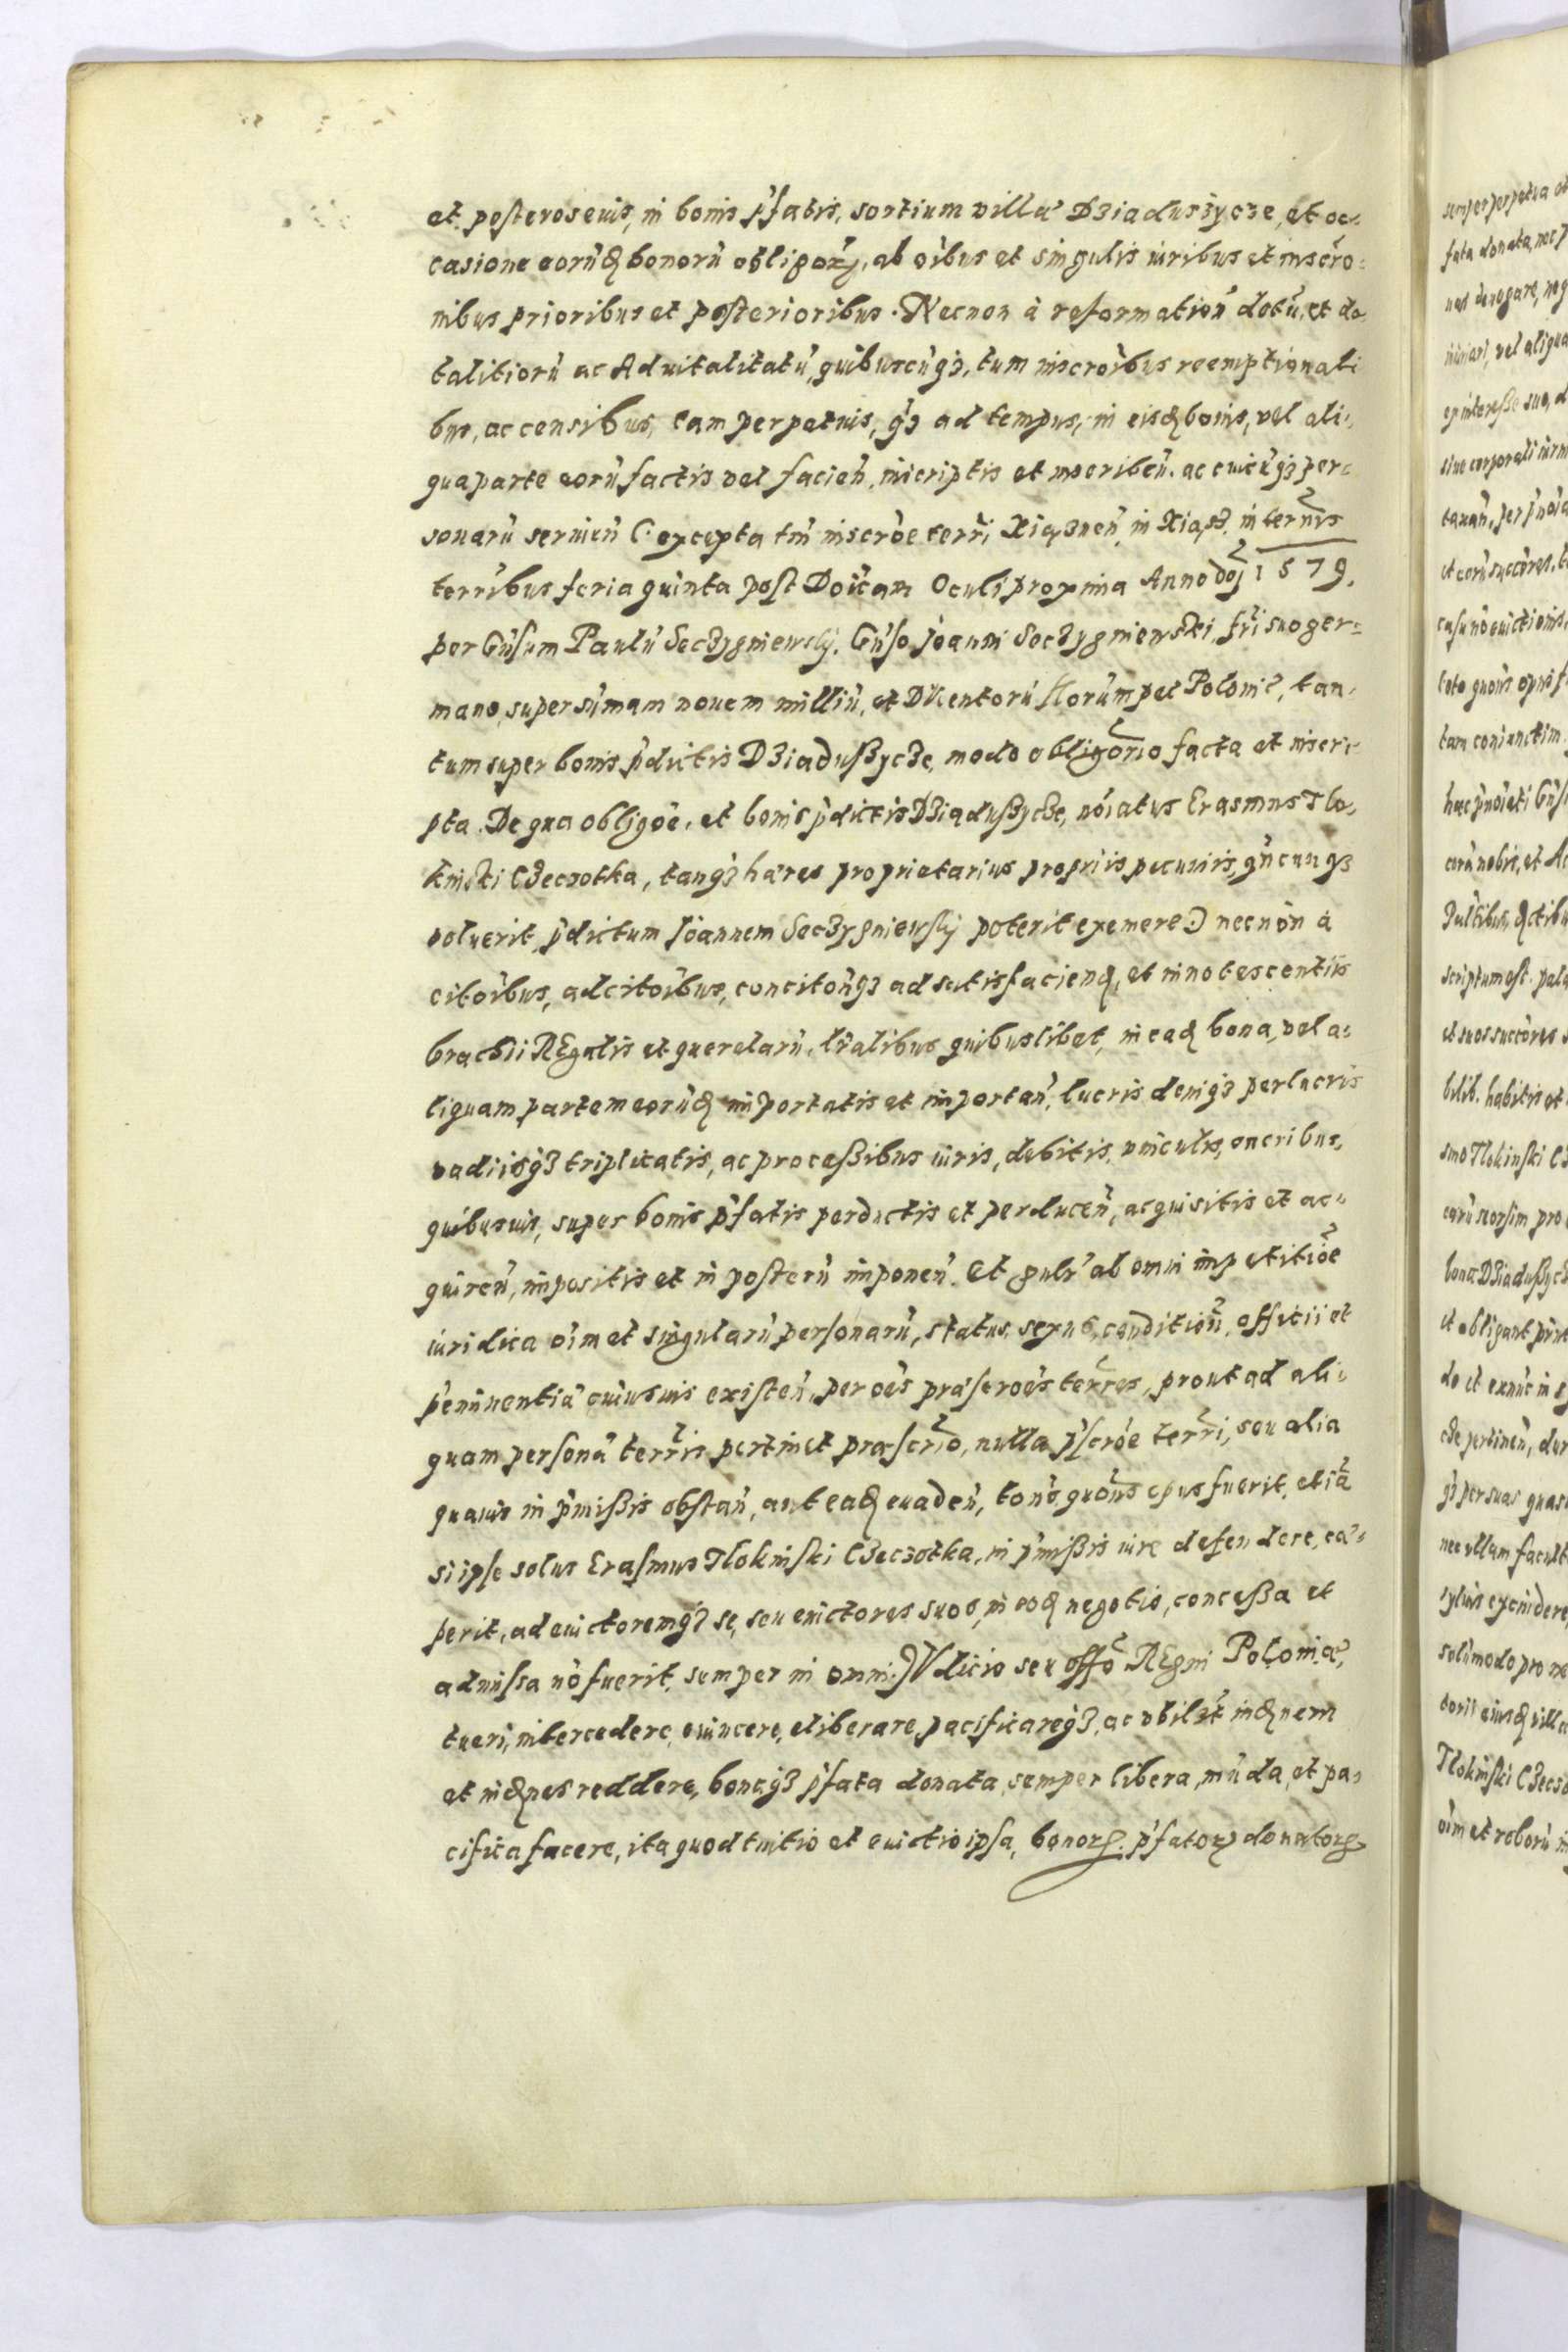 et posteros euis, in bonis p̃fatis, sortium villæ Dziadusżycze, et oc-
casione eorũd bonorũ obligorȝ, ab oĩbus et singulis iuribus et inscr̃o-
nibus prioribus et posterioribus. Necnon à reformatioñ dotũ, et do-
talitiorũ ac Aduitalitatũ, quibuscũqȝ, tum inscr̃oĩbus reemptionali
bus, ac censibus, tam perpetuis, q̃ȝ ad tempus, in eisd bonis, vel ali-
qua parte eorũ factis vel facieñ, inscriptis et inscribeñ. ac cuicũqȝ per-
sonarũ seruieñ (: excepta tm̃ inscr̃oe terr̃i Xiązneñ, in Xiąsz. in terr̃is
terrĩbus feria quinta post Doĩcam Oculi proxima Anno Doj 1579.
per Gñsum Paulũ Seczygniewskj. Gñso Joanni Seczygniewski fr̃i suo ger-
mano, super sũmam nouem milliũ, et DUcentorũ florũ in pec Poloniæ, tan-
tum super bonis p̃dictis Dziadußycze, modo obligorio facta et inscri-
pta. De qua obligõe, et bonis p̃dictis Dziadußycze, nõiatus Erasmus Tlo-
kinski Czeczotka, tanq̃ȝ hæres proprietarius propriis pecuniis, qñcunqȝ
voluerit, p̃dictum Joannem Seczygniewskj poterit exemere :) necnon à
citoĩbus, adcitoĩbus, concitoñqȝ ad satisfaciend, et innotescentiis
brachii REgalis et querelarũ, lr̃alibus quibuslibet, in ead bona, vel a-
liquam partem eorũd importatis et importañ, lucris deniqȝ perlucris
vadiisqȝ triplicatis, ac proceßibus iuris, debitis, vinculis, oneribus,
quibusuis, super bonis p̃fatis perductis et perduceñ, acquisitis et ac-
quireñ, impositis et in posterũ imponeñ. Et gnl̃r ab omni impetitiõe
iuridica oĩm et singularũ personarũ, status, sexus, conditioñ, officii et
p̃eminentiæ cuiusuis existeñ, per oẽs præscroẽs terr̃es, prout ad ali-
quam personã terr̃is pertinet præscr̃io, nulla p̃scrõe terr̃i, seu alia
quauis in p̃mißis obstañ, aut ead euadeñ, tonš quoñs opus fuerit, etiã
si ipse solus Erasmus Tlokinski Czeczotka, in p̃mißis iure defendere, cæ-
perit, ad euictoremqȝ se, seu euictores suos, in eod negotio, conceßa et
admissa nõ fuerit, semper in omni JUdicio seu offõ REgni Poloniæ,
tueri, intercedere, euincere, eliberare, pacificareqȝ, ac obilet indnem
et indnes reddere, bonaqȝ p̃fata donata, semper libera, mũda, et pa-
cifica facere, ita quod tuitio et euictio ipsa, bonorȝ p̃fatorȝ donatorȝ